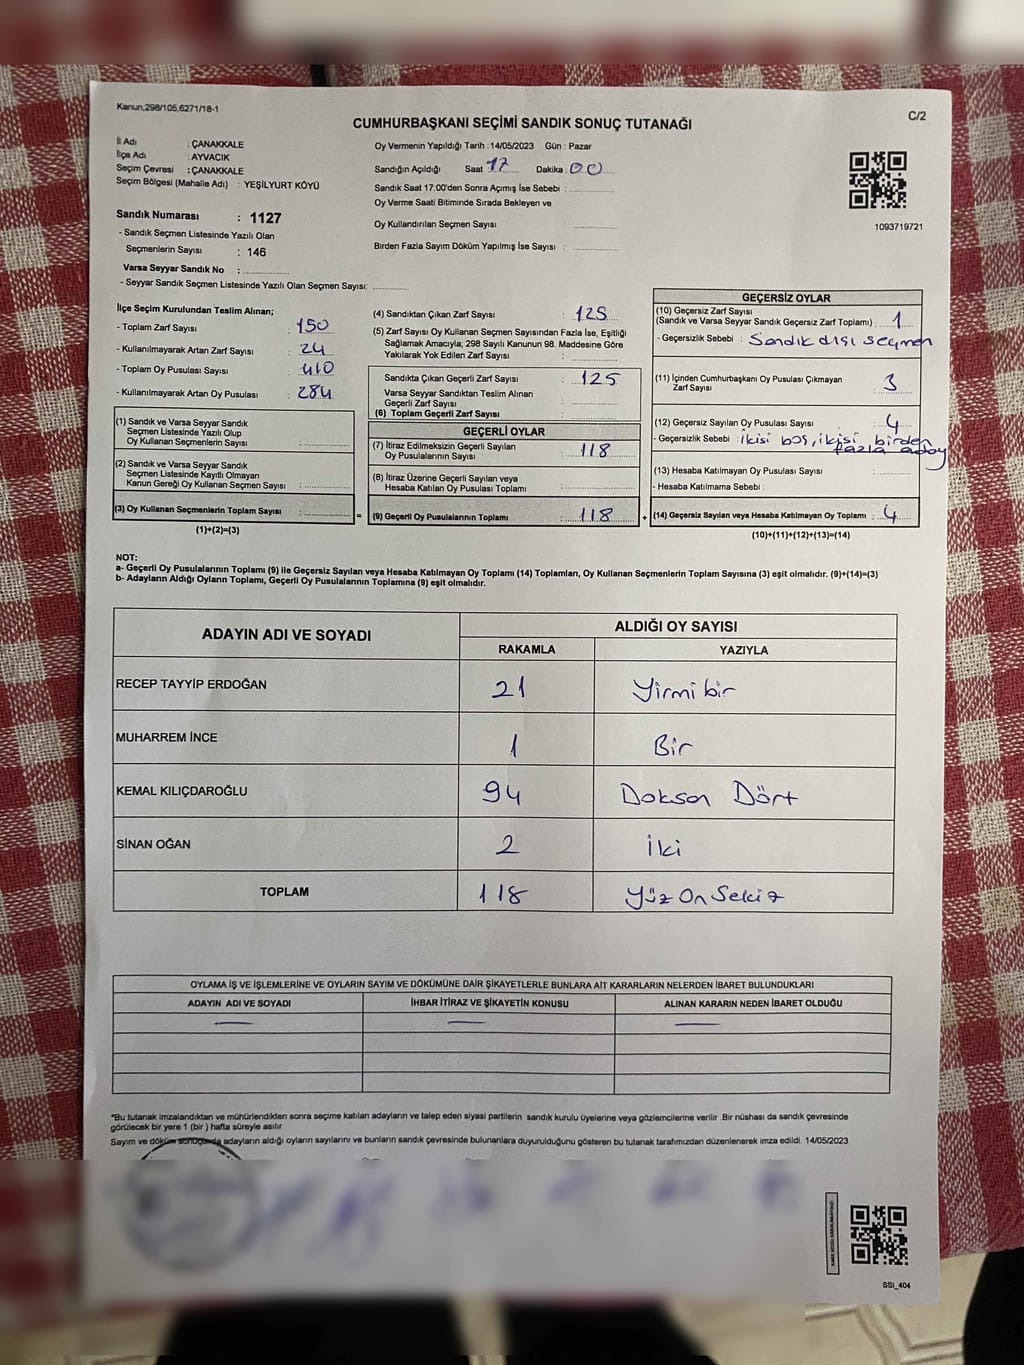 Kanun,298/105,6271/18-1
C/2
CUMHURBAŞKANI SEÇİMİ SANDIK SONUÇ TUTANAĞI
İl Adı : ÇANAKKALE
İlçe Adı : AYVACIK
Seçim Çevresi : ÇANAKKALE
Seçim Bölgesi (Mahalle Adı) : YEŞİLYURT KÖYÜ
Oy Vermenin Yapıldığı Tarih :14/05/2023 Gün : Pazar
Sandığın Açıldığı Saat 17 Dakika : 00
Sandık Saat 17:00'den Sonra Açımış İse Sebebi :
Oy Verme Saati Bitiminde Sırada Bekleyen ve
Oy Kullandırılan Seçmen Sayısı :
Birden Fazla Sayım Döküm Yapılmış İse Sayısı :
1093719721
Sandık Numarası : 1127
- Sandık Seçmen Listesinde Yazılı Olan
Seçmenlerin Sayısı : 146
Varsa Seyyar Sandık No :
- Seyyar Sandık Seçmen Listesinde Yazılı Olan Seçmen Sayısı:
İlçe Seçim Kurulundan Teslim Alınan;
- Toplam Zarf Sayısı : 150
- Kullanılmayarak Artan Zarf Sayısı : 24
- Toplam Oy Pusulası Sayısı : 410
- Kullanılmayarak Artan Oy Pusulası : 284
(1) Sandık ve Varsa Seyyar Sandık
Seçmen Listesinde Yazılı Olup
Oy Kullanan Seçmenlerin Sayısı :
(2) Sandık ve Varsa Seyyar Sandık
Seçmen Listesinde Kayıtlı Olmayan
Kanun Gereği Oy Kullanan Seçmen Sayısı :
(3) Oy Kullanan Seçmenlerin Toplam Sayısı :
(1)+(2)=(3)
(4) Sandıktan Çıkan Zarf Sayısı : 125
(5) Zarf Sayısı Oy Kullanan Seçmen Sayısından Fazla İse, Eşitliği
Sağlamak Amacıyla; 298 Sayılı Kanunun 98. Maddesine Göre
Yakılarak Yok Edilen Zarf Sayısı :
Sandıkta Çıkan Geçerli Zarf Sayısı : 125
Varsa Seyyar Sandıktan Teslim Alınan
Geçerli Zarf Sayısı :
(6) Toplam Geçerli Zarf Sayısı :
GEÇERLİ OYLAR
(7) İtiraz Edilmeksizin Geçerli Sayılan
Oy Pusulalarının Sayısı : 118
(8) İtiraz Üzerine Geçerli Sayılan veya
Hesaba Katılan Oy Pusulası Toplamı :
= (9) Geçerli Oy Pusulalarının Toplamı : 118 +
GEÇERSİZ OYLAR
(10) Geçersiz Zarf Sayısı
(Sandık ve Varsa Seyyar Sandık Geçersiz Zarf Toplamı) : 1
- Geçersizlik Sebebi : Sandık dışı seçmen
(11) İçinden Cumhurbaşkanı Oy Pusulası Çıkmayan
Zarf Sayısı : 3
(12) Geçersiz Sayılan Oy Pusulası Sayısı : 4
- Geçersizlik Sebebi : ikisi boş, ikisi birden
fazla aday
(13) Hesaba Katılmayan Oy Pusulası Sayısı :
- Hesaba Katılmama Sebebi :
(14) Geçersiz Sayılan veya Hesaba Katılmayan Oy Toplamı : 4
(10)+(11)+(12)+(13)=(14)
NOT:
a- Geçerli Oy Pusulalarının Toplamı (9) ile Geçersiz Sayılan veya Hesaba Katılmayan Oy Toplamı (14) Toplamları, Oy Kullanan Seçmenlerin Toplam Sayısına (3) eşit olmalıdır. (9)+(14)=(3)
b- Adayların Aldığı Oyların Toplamı, Geçerli Oy Pusulalarının Toplamına (9) eşit olmalıdır.
ADAYIN ADI VE SOYADI
ALDIĞI OY SAYISI
RAKAMLA YAZIYLA
RECEP TAYYİP ERDOĞAN 21 Yirmi bir
MUHARREM İNCE 1 Bir
KEMAL KILIÇDAROĞLU 94 Doksan Dört
SİNAN OĞAN 2 İki
TOPLAM 118 Yüz On Sekiz
OYLAMA İŞ VE İŞLEMLERİNE VE OYLARIN SAYIM VE DÖKÜMÜNE DAİR ŞİKAYETLERLE BUNLARA AİT KARARLARIN NELERDEN İBARET BULUNDUKLARI
ADAYIN ADI VE SOYADI İHBAR İTİRAZ VE ŞİKAYETİN KONUSU ALINAN KARARIN NEDEN İBARET OLDUĞU
*Bu tutanak imzalandıktan ve mühürlendikten sonra seçime katılan adayların ve talep eden siyasi partilerin sandık kurulu üyelerine veya gözlemcilerine verilir .Bir nüshası da sandık çevresinde
görülecek bir yere 1 (bir ) hafta süreyle asılır
Sayım ve döküm sonucunda adayların aldığı oyların sayılarını ve bunların sandık çevresinde bulunanlara duyurulduğunu gösteren bu tutanak tarafımızdan düzenlenerek imza edildi. 14/05/2023
SSI_404